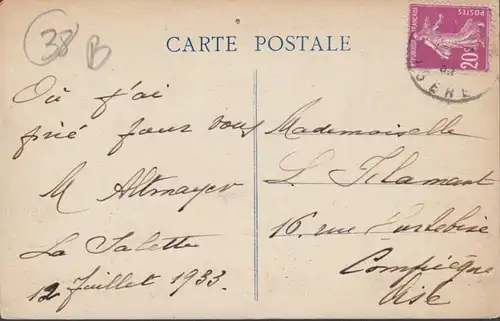 38
B
CARTE POSTALE
REPUBLIQUE FRANÇAISE
POSTES
20c
ISERE
Où j'ai
prié pour vous
M Altmayer
La Salette
12 Juillet 1933
Mademoiselle
L. Filamant
16 rue
Compiègne
Oise